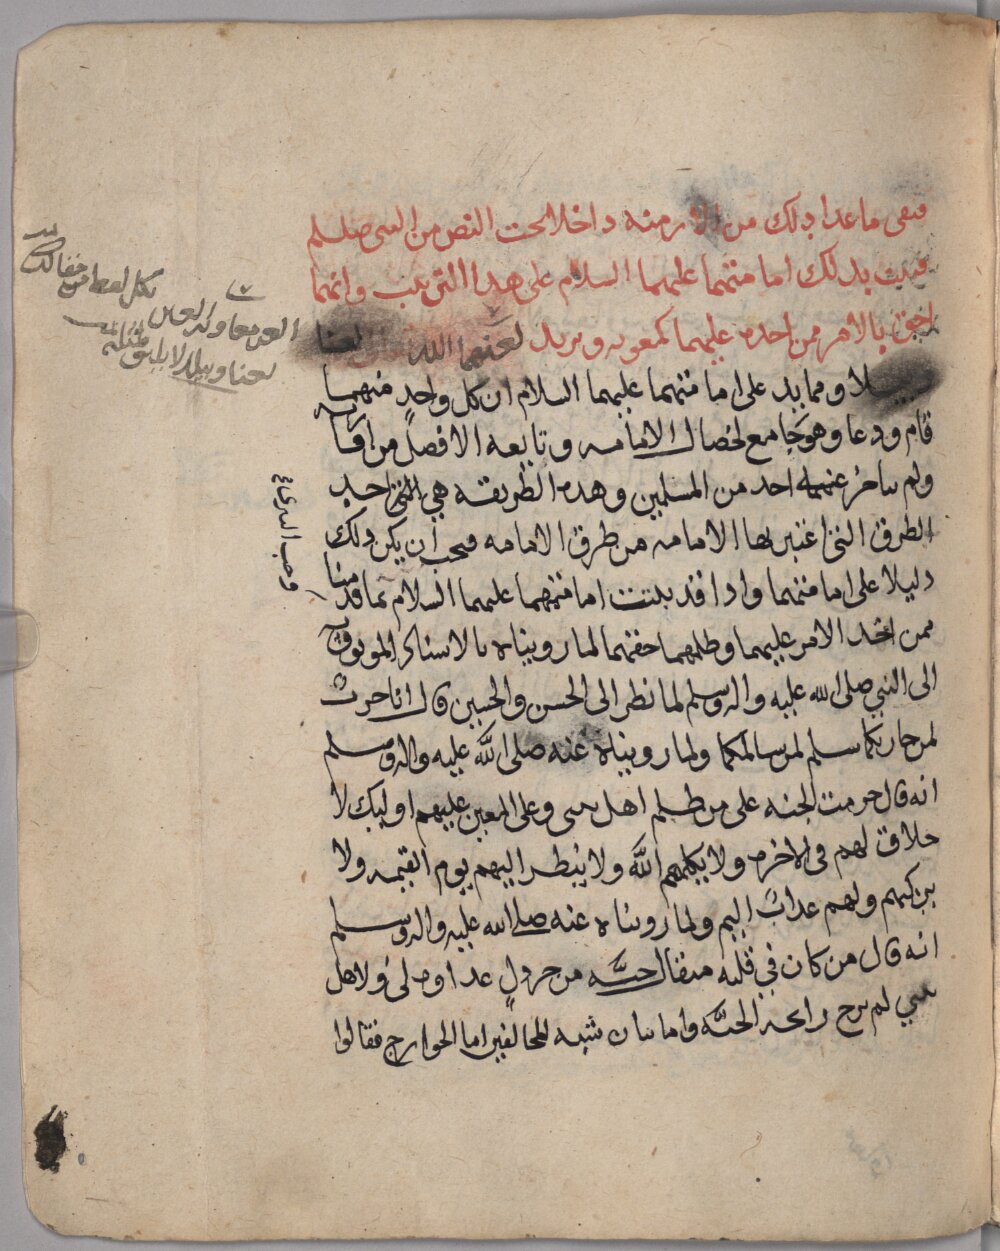 فبقى ما عدا ذلك من الازمنه داخلا تحت النص من النبى صلعلم
فثبت بذلك امامتهما عليهما السلام على هذا الترتيب وانهما
احق بالامر من احده عليهما كمعويه ويزيد لعنهما الله لعنا
وبيـلا ومما يدل على امامتهما عليهما السلام ان كل واحدٍ منهمـا
قام ودعا وهو جامع لخصال الامامه وتابعه الافضل من اقاربه
ولم يتاخر عنهما احد من المسلمين وهذه الطريقه هي احد
الطرق التى اعتبر لها الامامه من طرق الامامه فيجب ان يكن ذلك
دليلا على امامتهما واذا قد بتت امامتهما عليهما السلام بما قدمنا
فمن اخذ الامر عليهما وظلمهما حقهما لما رويناه بالاسناد الموثوق به
الى النبي صلى الله عليه واله وسلم لما نظر الى الحسن والحسين قال انا حربٌ
لمن حاربكما سلم لمن سالمكما ولما رويناه عنه صلى الله عليه واله وسلم
انه قال حرمت الجنه على من ظلم اهل بيتى وعلى المعين عليهم اوليك لا
خلاق لهم فى الاخره ولا يكلمهم الله ولا ينظر اليهم يوم القيمه ولا
يزكيهم ولهم عذابٌ اليم ولما رويناه عنه صلى الله عليه واله وسلم
انه قال من كان في قلبه مثقال حبَّه من خردلٍ عداوه لى ولاهل
بيتي لم يرح رائحه الجنَّه واما بيان شبه المخالفين اما الخوارج فقالوا
وجب البرى
العن معاويه
لعنا وبيلا لا يليق
بكل لعنه من